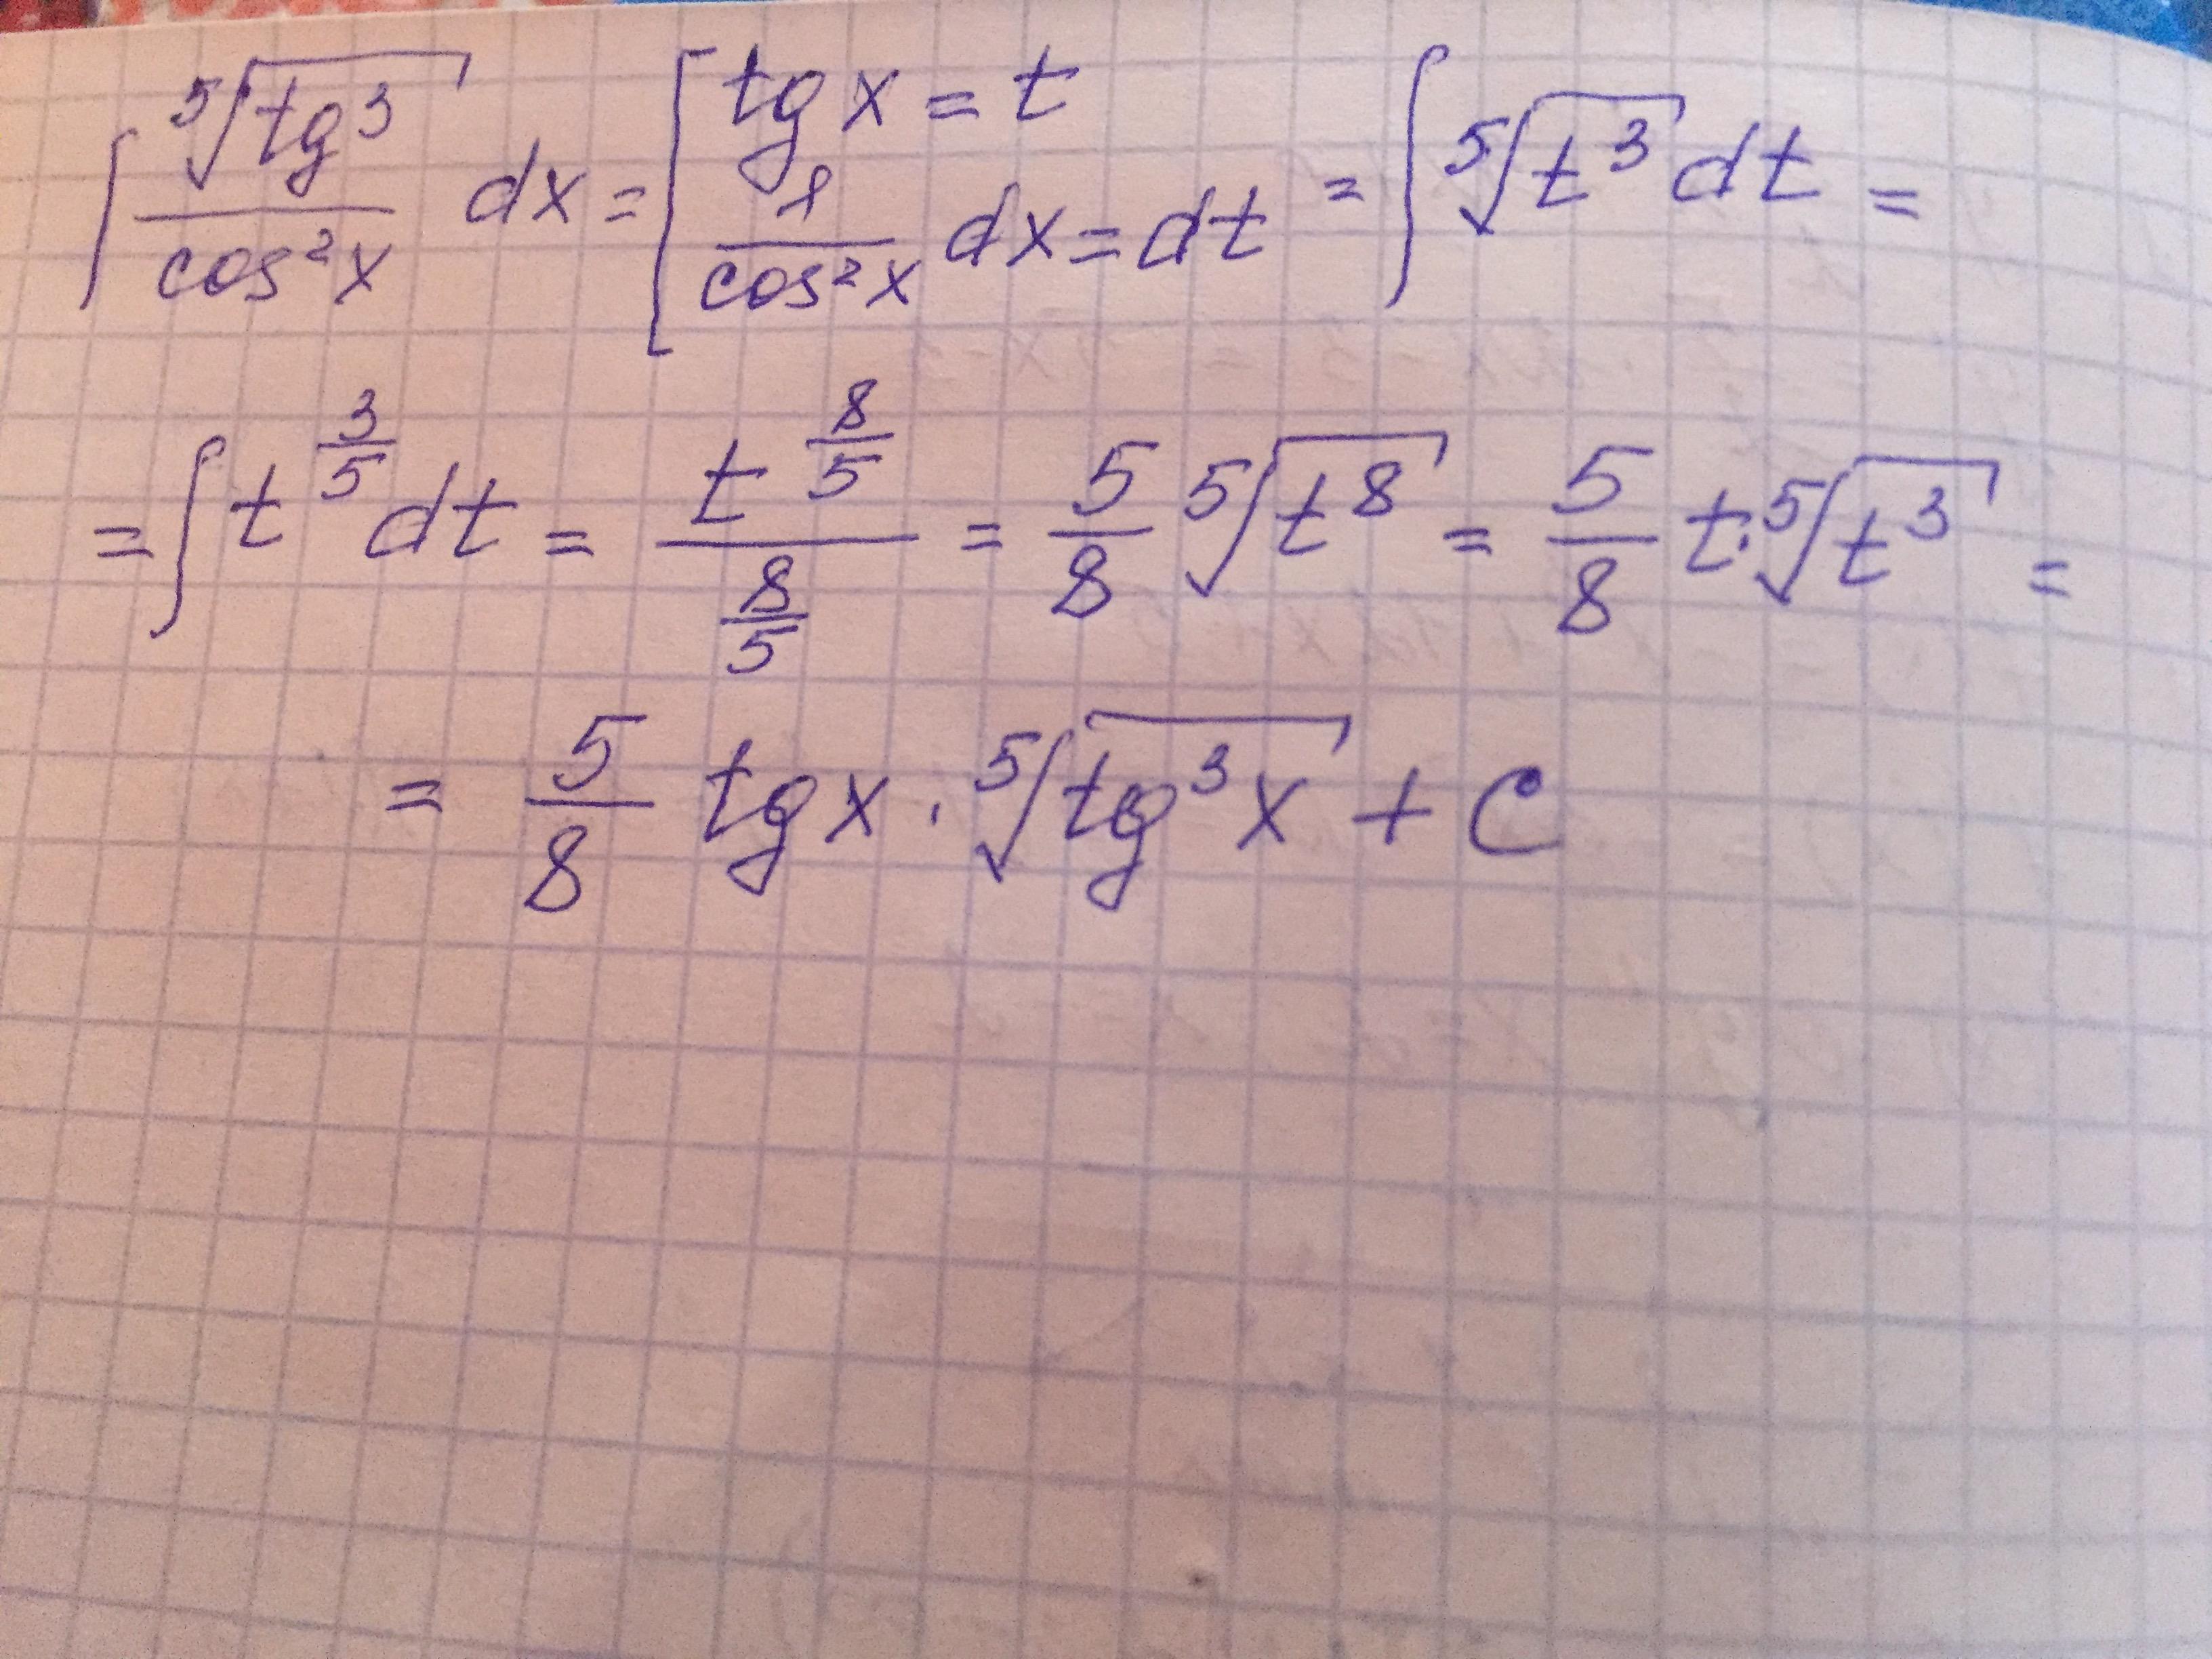 ∫ ⁵√(tg³) / cos²x dx = [ tg x = t ; 1/cos²x dx = dt = ∫ ⁵√(t³) dt =
= ∫ t^(3/5) dt = t^(8/5) / (8/5) = 5/8 ⁵√(t⁸) = 5/8 t·⁵√(t³) =
= 5/8 tg x · ⁵√(tg³x) + C